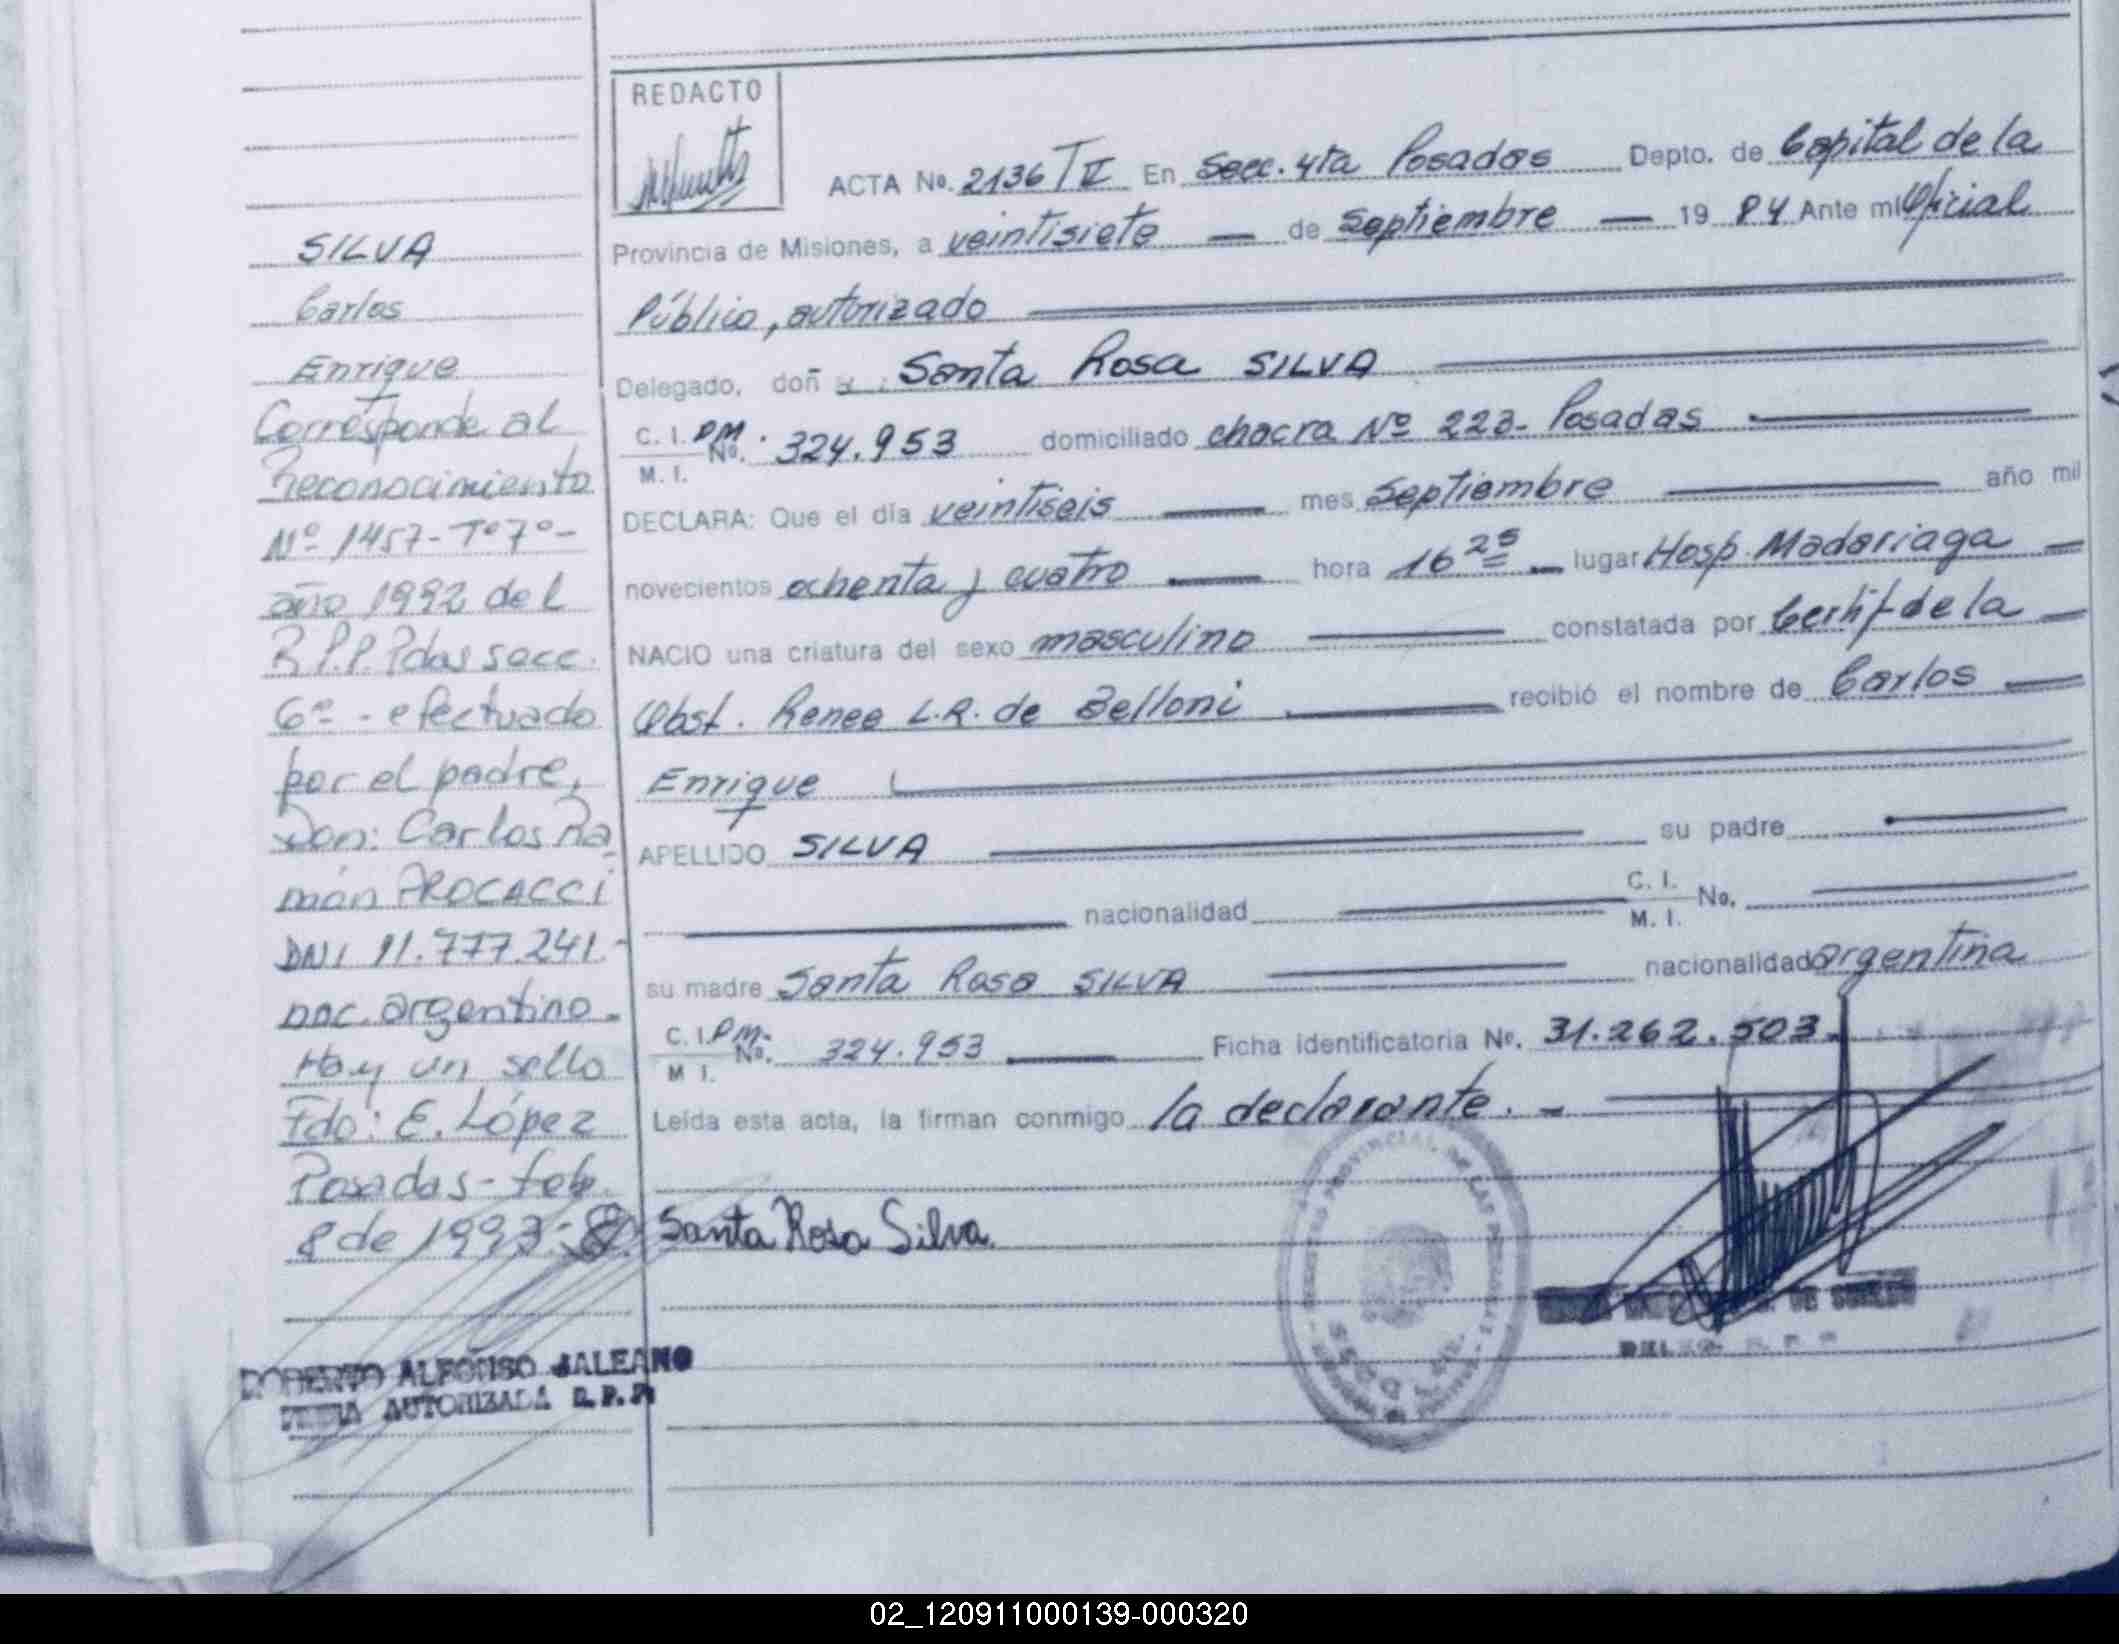 SILVA
Carlos
Enrique
Corresponde al
Reconocimiento
Nº 1457-Tº7º-
año 1992 del
R.P.P. Pdas secc.
6º - efectuado
por el padre,
Don: Carlos Ra
món PROCACCI
DNI 11.777.241.-
nac. argentino.
Hay un sello
Fdo: E. López
Posadas-feb.
8 de 1993.
ALFONSO JALEANO
AUTORIZADA R.P.P.
REDACTO
ACTA No. 2136 T II En Secc. 4ta Posadas Depto. de Capital de la
Provincia de Misiones, a veintisiete — de Septiembre — 19 84 Ante mi Oficial
Público, autorizado
Delegado, doñ a: Santa Rosa SILVA
C. I. PM. No. 324.953 domiciliado chacra Nº 223- Posadas
M. I.
DECLARA: Que el día veintiseis — mes Septiembre — año mil
novecientos ochenta y cuatro — hora 16 25 — lugar Hosp. Madariaga —
NACIO una criatura del sexo masculino — constatada por Certif de la —
Obst. Renee L.R. de Belloni — recibió el nombre de Carlos —
Enrique
APELLIDO SILVA — su padre —
nacionalidad — C. I. No. —
M. I.
su madre Santa Rosa SILVA — nacionalidad argentina
C. I. PM. No. 324.953 — Ficha identificatoria No. 31.262.503.-
M I.
Leída esta acta, la firman conmigo la declarante. -
Santa Rosa Silva.
REGISTRO PROVINCIAL DE LAS PERSONAS
02_120911000139-000320